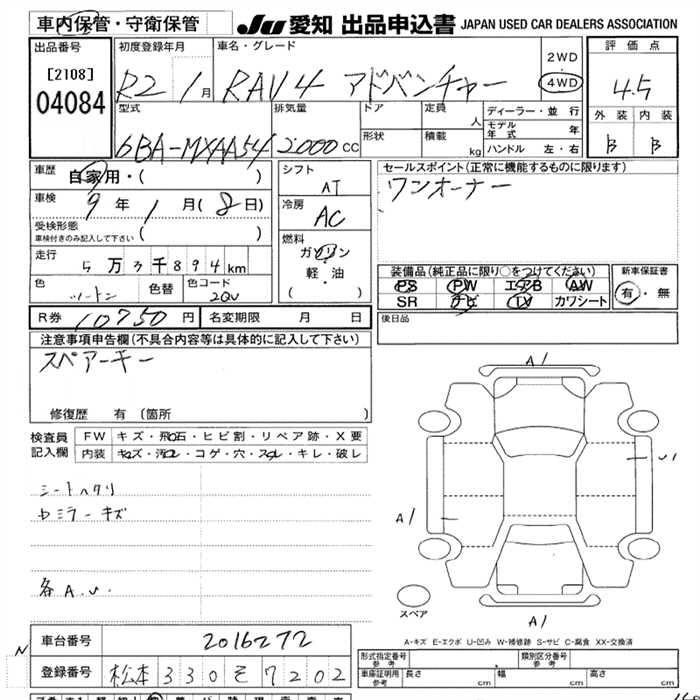 車内保管・守衛保管
JU 愛知 出品申込書 JAPAN USED CAR DEALERS ASSOCIATION
出品番号 [2108] 04084
初度登録年月 R2 1月
車名・グレード RAV4 アドベンチャー
2WD・4WD
評価点 4.5
外装 内装
B B
型式 6BA-MXAA54
排気量 2000cc
ドア 定員 人
形状 積載 kg
ディーラー・並行
モデル年式 年
ハンドル 左・右
車歴 自家用・( )
車検 9年 1月(8日)
受検形態
車検付きのみ記入して下さい ( )
走行 5万3千894km
色 ツートン 色替 色コード 2QU
シフト AT
冷房 AC
燃料 ガソリン・軽・油 ( )
セールスポイント(正常に機能するものに限ります)
ワンオーナー
装備品(純正品に限り○をつけてください)
PS PW エアB AW
SR ナビ TV カワシート
新車保証書 有・無
R券 10750円 名変期限 月 日
後日品
注意事項申告欄(不具合内容等は具体的に記入して下さい)
スペアーキー
修復歴 有 (箇所 )
検査員記入欄
FW キズ・飛石・ヒビ割・リペア跡・X要
内装 キズ・汚れ・コゲ・穴・スレ・キレ・破レ
シートヘタリ
Dミラーキズ
各A.U.
A1
U1
A1
A1
スペア
A-キズ E-エクボ U-凹み W-補修跡 S-サビ C-腐食 XX-交換済
車台番号 2016272
登録番号 松本 330 そ 7202
N
型式指定番号 参考
類別区分番号 参考
車庫証明用 参考 長さ cm 幅 cm 高さ cm